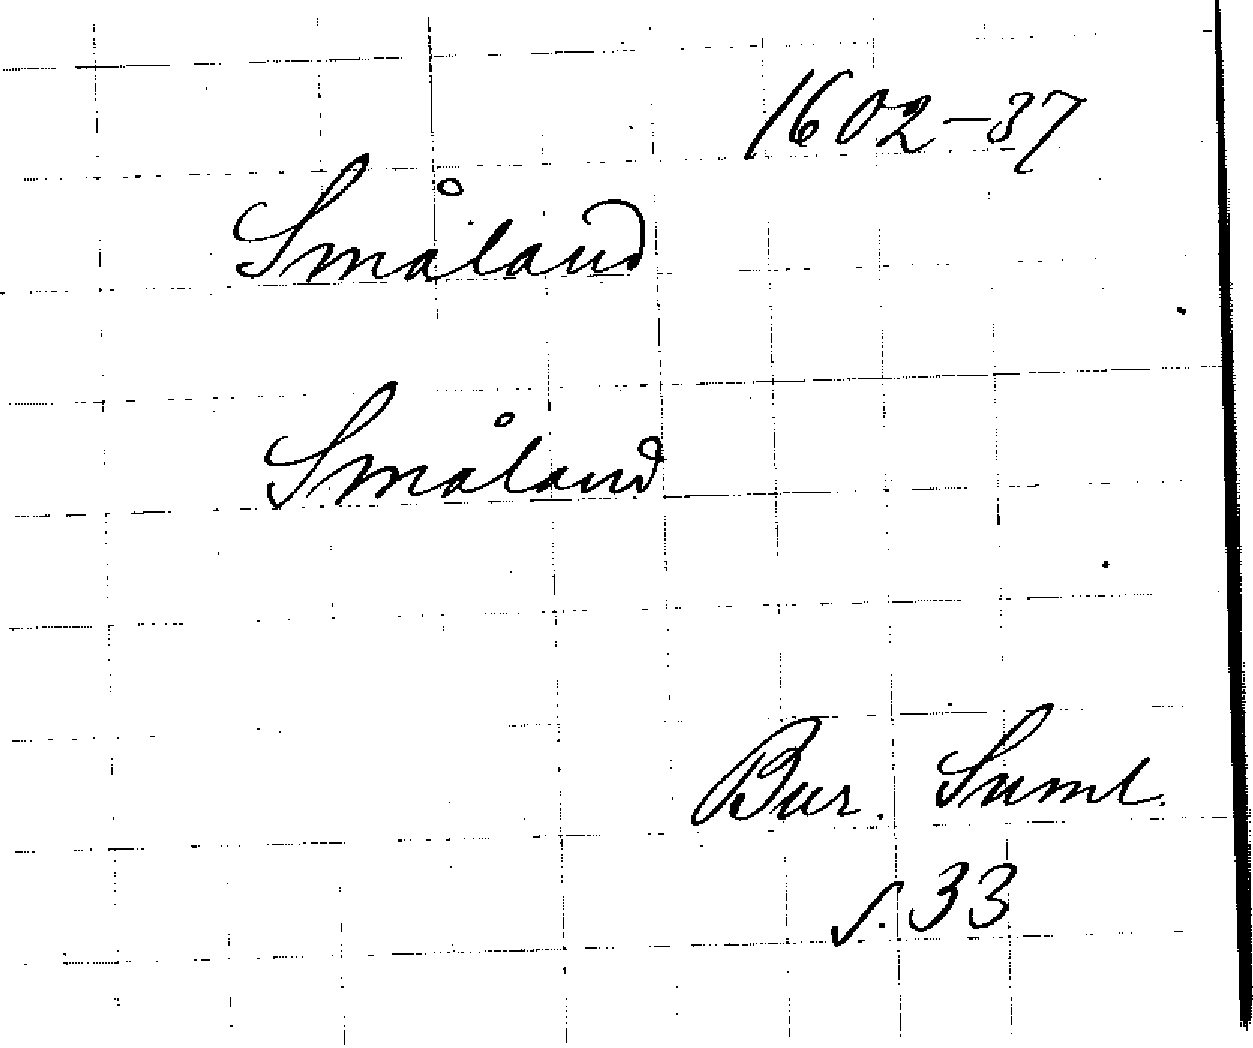 1602-37
Småland
Småland
Bur. Saml.
s. 33